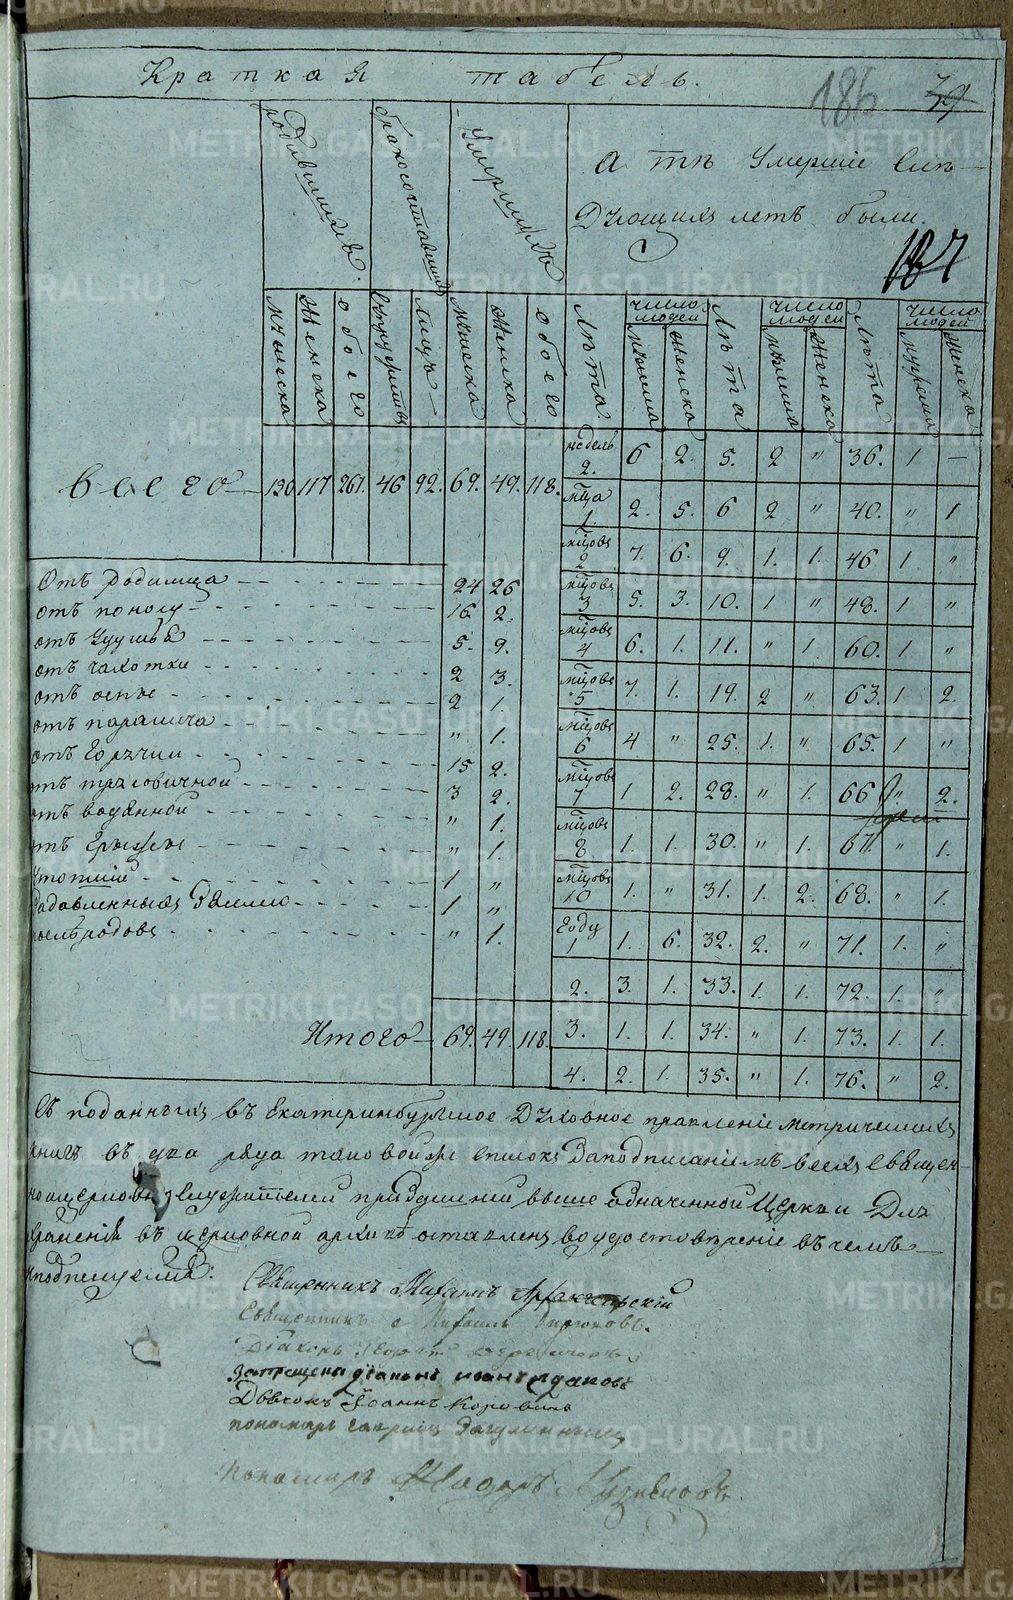 Краткая табель.
186
39
187
родившихся.
бракосочтавшихся
умершихъ
А тѣ умершіе слѣ-
дующихъ летъ были.
мужеска женска обоего супружествъ лицъ мужеска женска обоего
лѣта число людей мужеска женска лѣта число людей мужеска женска лѣта число людей мужеска женска
всего 130 117 267. 46 92. 69. 49. 118.
недель 2. 6 2. 5. 2 " 36. 1 —
мца 1. 2. 5. 6 2 " 40. " 1
мцовъ 2 7. 6. 9. 1. 1. 46 1. "
мцовъ 3 5. 3. 10. 1 " 48. 1 "
мцовъ 4 6. 1. 11. " 1. 60. 1 "
мцовъ 5 7. 1. 19. 2 " 63. 1 2.
мцовъ 6 4 " 25. 1. " 65. 1 "
мцовъ 7 1 2. 28. " 1. 66 " 2.
мцовъ 8 1. 1. 30. " 1. 67. " 1.
мцовъ 10 1. " 31. 1. 2. 68. " 1.
году 1 1. 6. 32. 2. " 71. 1. "
2. 3. 1. 33. 1. 1. 72. 1. "
3. 1. 1. 34. " 1. 73. 1. 1.
4. 2. 1. 35. " 1. 76. " 2.
Отъ родимца 24 26
отъ поносу 16 2.
отъ удушья 5. 9.
отъ чахотки 2 3.
отъ оспы 2 1.
отъ паралича " 1.
отъ горячки 15 2.
отъ трясовичной 3 2.
отъ водяной " 1.
отъ грыжы " 1.
утопшій 1 "
задавленныхъ землею 1 "
послѣ родовъ " 1.
Итого 69. 49. 118.
Съ поданныхъ въ Екатеринбургское духовное правленіе метрическихъ
книгъ въ два ряда таковой же списокъ за подписаніемъ всехъ священ-
но церковнослужителей придешній выше означенной церкви для
храненія въ церковной архивѣ оставленъ во удостовѣреніе въ чемъ
и подписуемся:
Священникъ Михаилъ Архангельскій
Священникъ Михаилъ Бирюковъ.
Діаконъ Георгій
Запрещены діаконъ Иванъ
Дьячокъ Іоаннъ Коровинъ
пономарь Гавріилъ
Пономарь Кузнецовъ.
METRIKI.GASO-URAL.RU